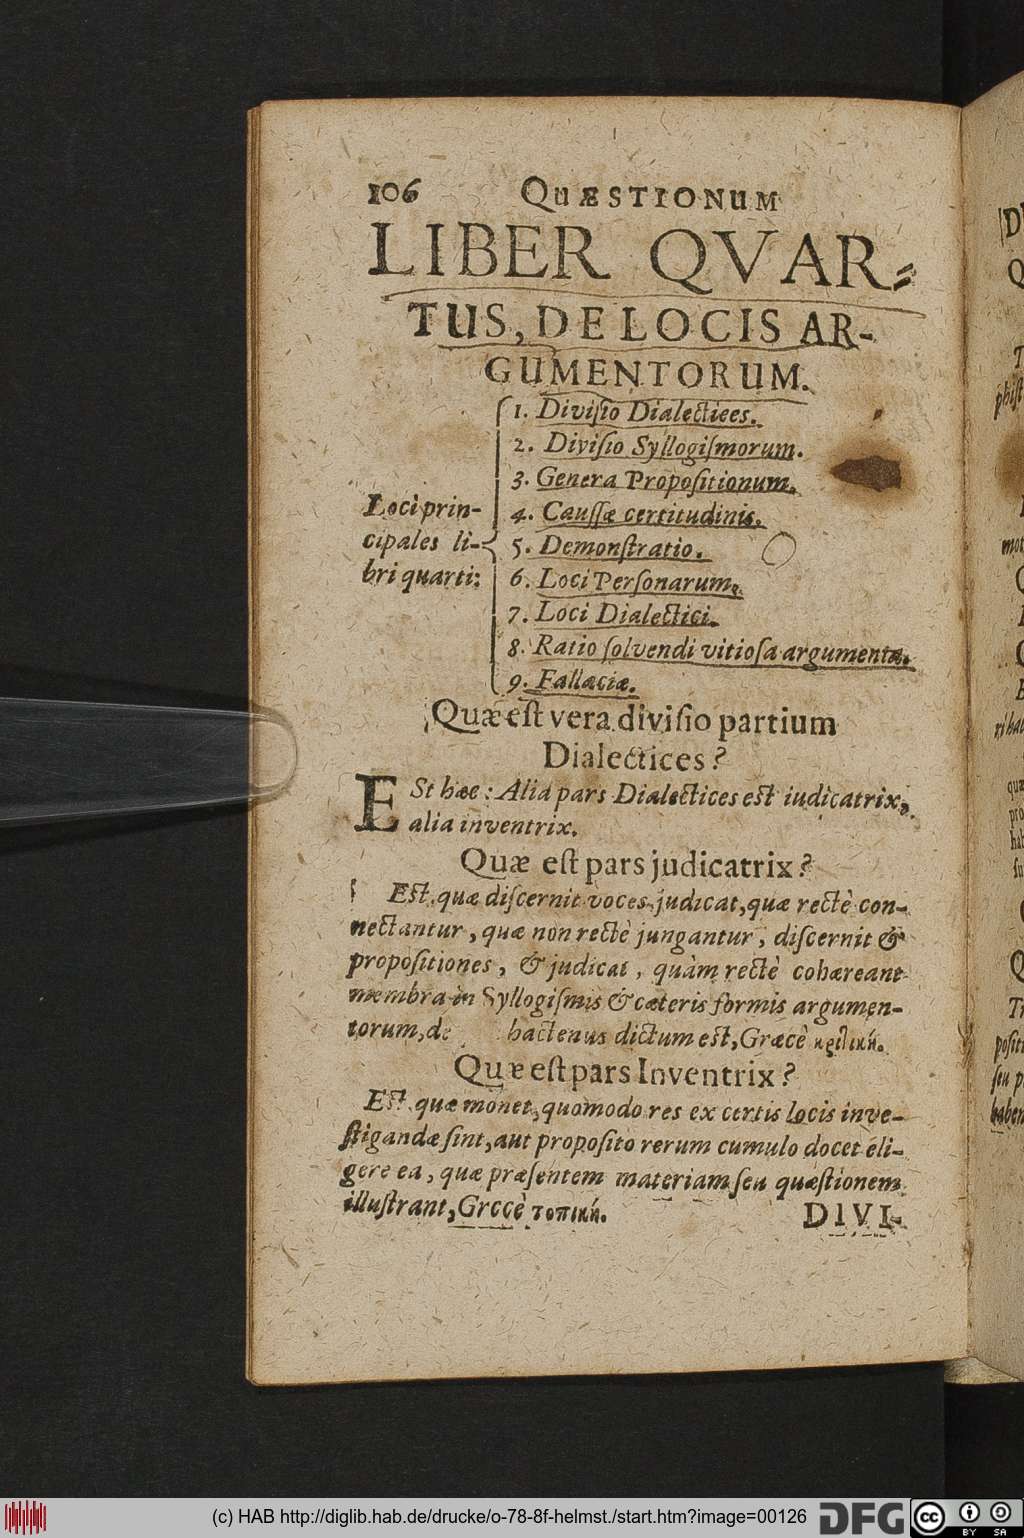 106 QUÆSTIONUM
LIBER QVAR-
TUS, DE LOCIS AR-
GUMENTORUM.
Loci prin-
cipales li-
bri quarti:
1. Diviſio Dialectices.
2. Diviſio Syllogiſmorum.
3. Genera Propoſitionum.
4. Cauſſæ certitudinis.
5. Demonſtratio.
6. Loci Perſonarum.
7. Loci Dialectici.
8. Ratio ſolvendi vitioſa argumenta.
9. Fallaciæ.
Quæ eſt vera diviſio partium
Dialectices?
ESt hæc: Alia pars Dialectices eſt iudicatrix,
alia inventrix.
Quæ eſt pars judicatrix?
Eſt, quæ diſcernit voces, judicat, quæ rectè con-
nectantur, quæ non rectè jungantur, diſcernit &
propoſitiones, & judicat, quàm rectè cohæreant
membra in Syllogiſmis & cæteris formis argumen-
torum, de hactenus dictum eſt, Græcè κριτική.
Quæ eſt pars Inventrix?
Eſt, quæ monet, quomodo res ex certis locis inve-
ſtigandæ ſint, aut propoſito rerum cumulo docet eli-
gere ea, quæ præſentem materiam ſeu quæſtionem
illuſtrant, Grccè τοπική.
DIVI-
(c) HAB http://diglib.hab.de/drucke/o-78-8f-helmst./start.htm?image=00126
DFG
cc BY SA